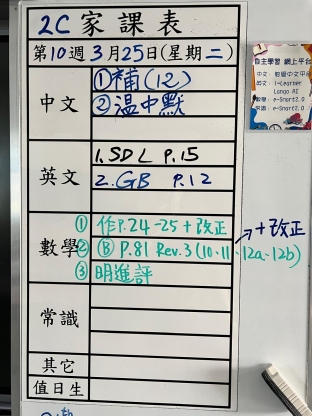 2C 家課表
第10週3月25日(星期二)
中文
①補(12)
②溫中默
英文
1. SDL P.15
2. GB P.12
數學
① 作P.24-25+改正
② Ⓑ P.81 Rev.3(10、11、12a、12b)
+改正
③ 明進評
常識
其它
值日生
自主學習 網上平台
中文：
英文：i-Learner
Lango AI
數學：e-Smart2.0
常識：e-Smart2.0